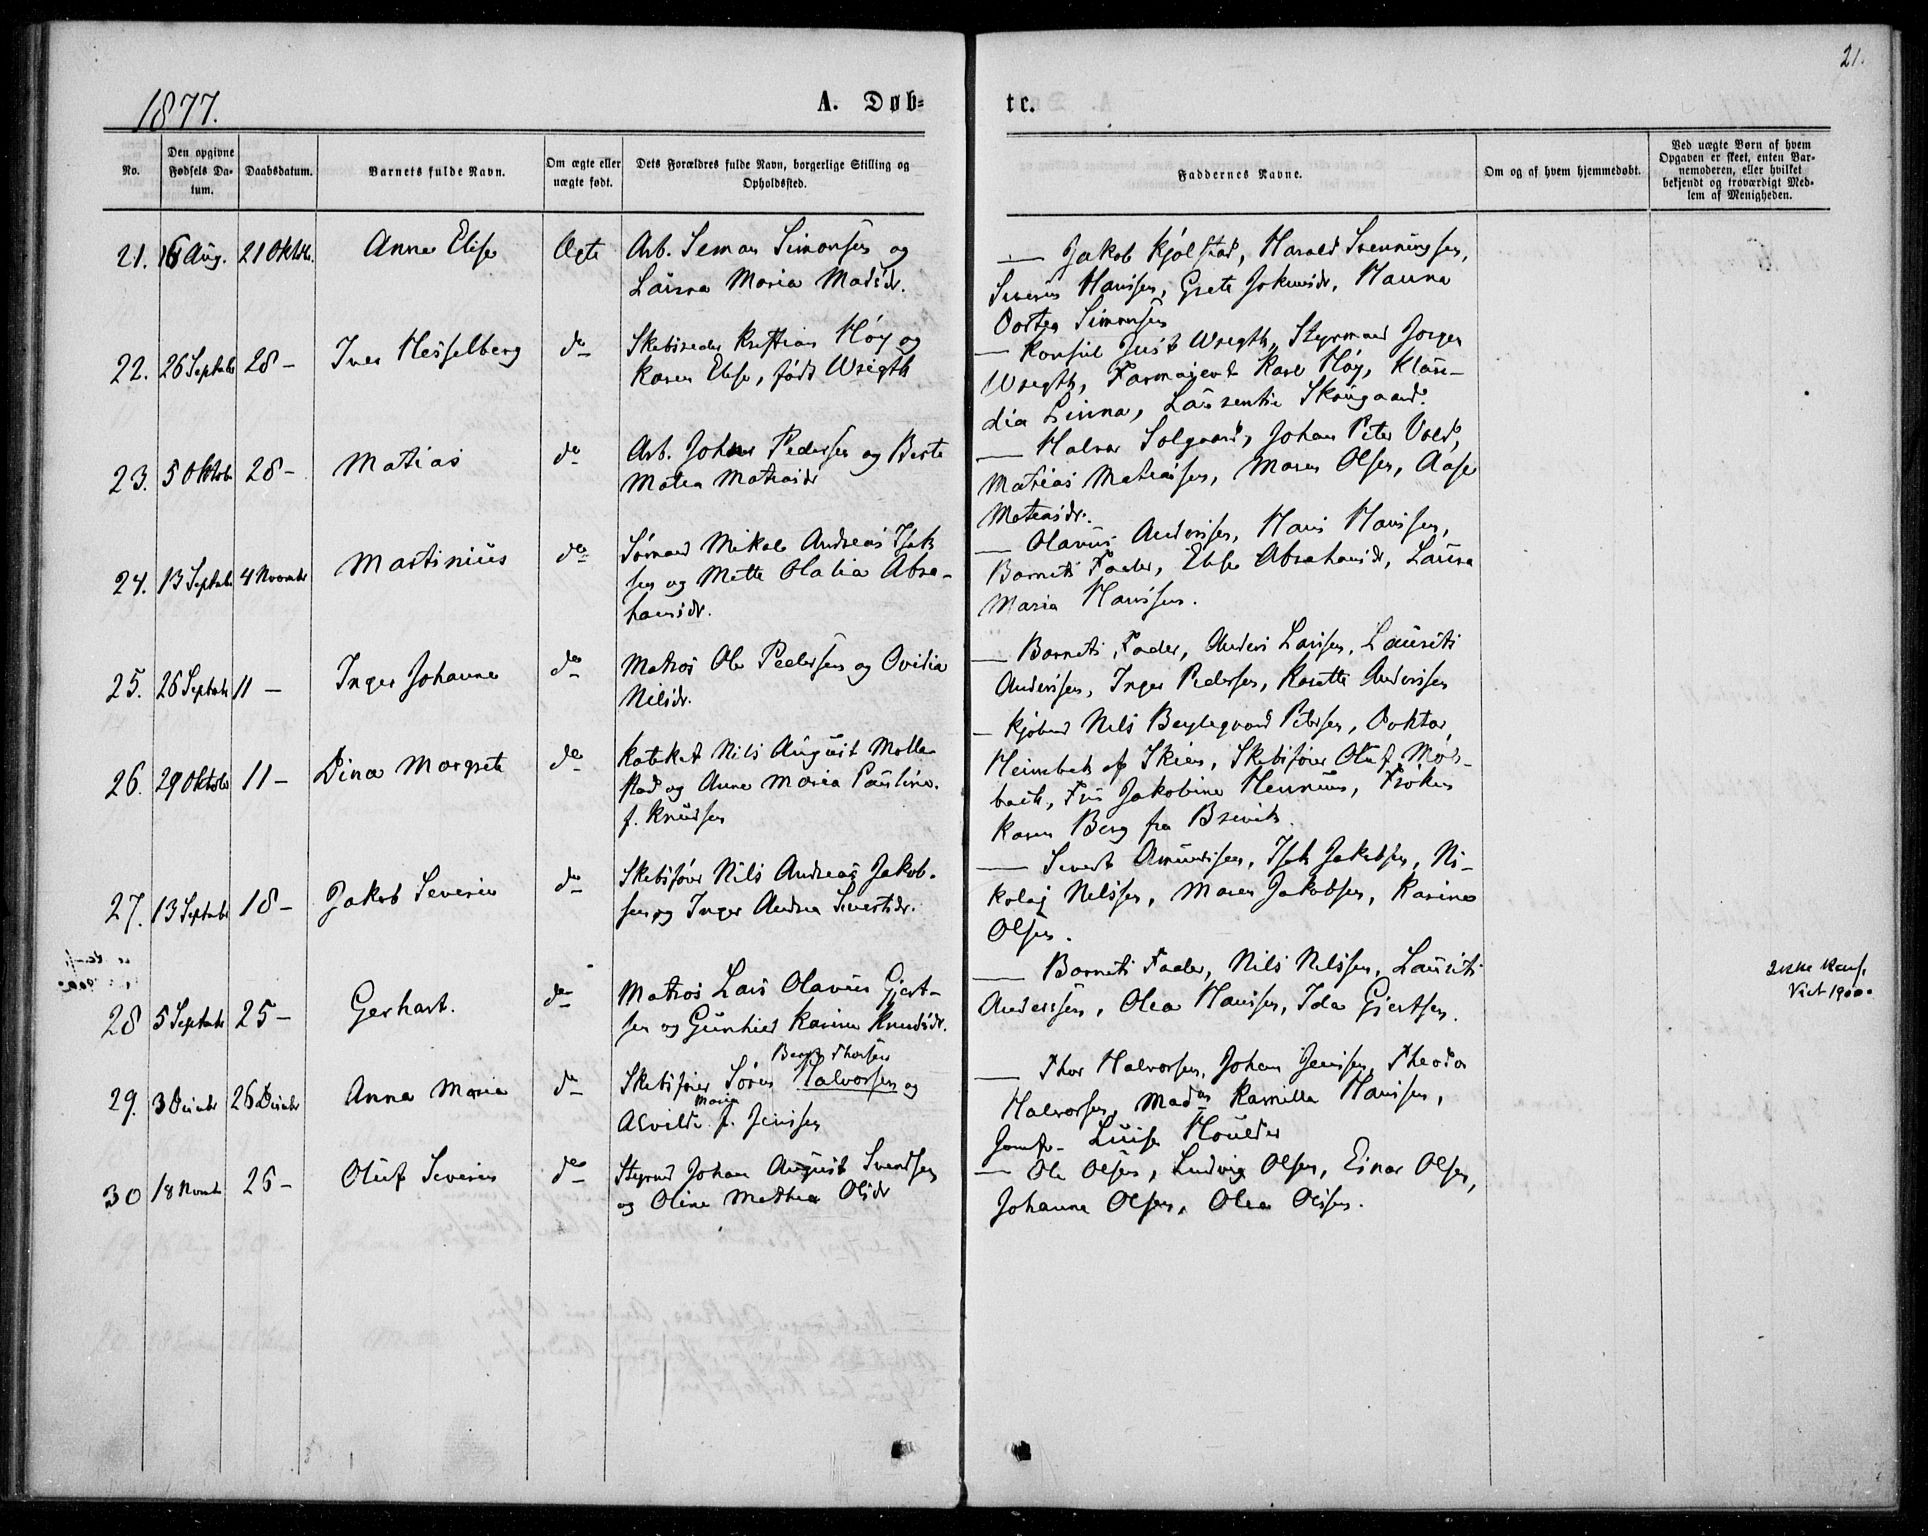 21.
1877.
A. Døb-
te.
No.
Den opgivne Fødsels Da-tum.
Daabsdatum.
Barnets fulde Navn.
Om ægte eller uægte født.
Dets Forældres fulde Navn, borgerlige Stilling og Opholdssted.
Faddernes Navne.
Om og af hvem hjemmedøbt.
Ved uægte Børn af hvem
Opgaven er skeet, enten Bar-
nemoderen, eller hvilket
bekjendt og troværdigt Med-
lem af Menigheden.
21. 16 Aug. 21 Oktobr. Anna Elise Ægte Arb. Simon Simonsen og
Laura Maria Madsdr.
— Jakob Kjølstad, Harald Svenningsen,
Severin Hansen, Grete Jokumsdr, Hanna
Dortea Simonsen
22. 26 Septebr 28 – Iver Hesselberg do Skibsreder Kristian Høy og
Karen Elise, født Wrigth
— Konsul Just Wrigth, Styrmand Jørgen
Wrigth, Farmajevt Karl Høy, Klau-
dia Linna, Laurentie Skougaard.
23. 5 Oktobr 28 – Matias do Arb. Johan Pedersen og Berte
Matea Matiasdr
— Halvor Solgaard, Johan Peter Vold,
Matias Matiassen, Maren Olsen, Aase
Matiasdr.
24. 13 Septebr 4 Novembr Martinius do Sømand Mikal Andreas Isak
sen og Mette Halia Abra-
hamsdr.
— Olavus Andersen, Hans Hansen,
Barnets Fader, Elise Abrahamsdr, Laura
Maria Hansen.
25. 26 Septebr 11 – Inger Johanne do Matros Ole Pedersen og Ovidia
Nilsdr.
— Barnets Fader, Anders Larsen, Laurits
Andersen, Inger Pedersen, Karette Andersen
26. 29 Oktobr 11 – Dina Margrete do Kateket Nils August Molle
stad og Anna Maria Pauline
f. Knudsen
— Kjøbmd Nils Beylegaard Petersen, Doktor
Heimbek af Skien, Skibsfører Oluf Møl-
bach, Fru Jakobine Hennum, Frøken
Karen Berg fra Brevik.
27. 13 Septebr 18 – Jakob Severin do Skibsfører Nils Andreas Jakob-
sen og Inger Andrea Sivertsdr.
— Sivert Amundsen, Isak Jakobsen, Ni-
kolaj Nilssen, Maren Jakobsen, Karine
Olsen.
28 5 Septebr 25 – Gerhart. do Matros Lars Olavus Gjert-
sen og Gunhild Karine Knudsdr.
— Barnets Fader, Nils Nilssen, Laurits
Anderssen, Olea Hanssen, Ida Gjertsen.
1900.
29. 3 Decembr 26 Decembr Anna Maria do Skibsfører Søren Halvorsen og
Bergh Thorsen
Maria
Alvilde f. Jenssen
— Thor Halvorsen, Johan Jenssen, Theodor
Halvorsen, Madam Kamilla Hanssen,
Jomfr. Luise Houlder
30 18 Novbr 26 – Oluf Severin do Styrmd Johan August Svendsen
og Oline Mathea Olsdr
— Ole Olsen, Ludvig Olsen, Einar Olsen,
Johanna Olsen, Olea Olsen.